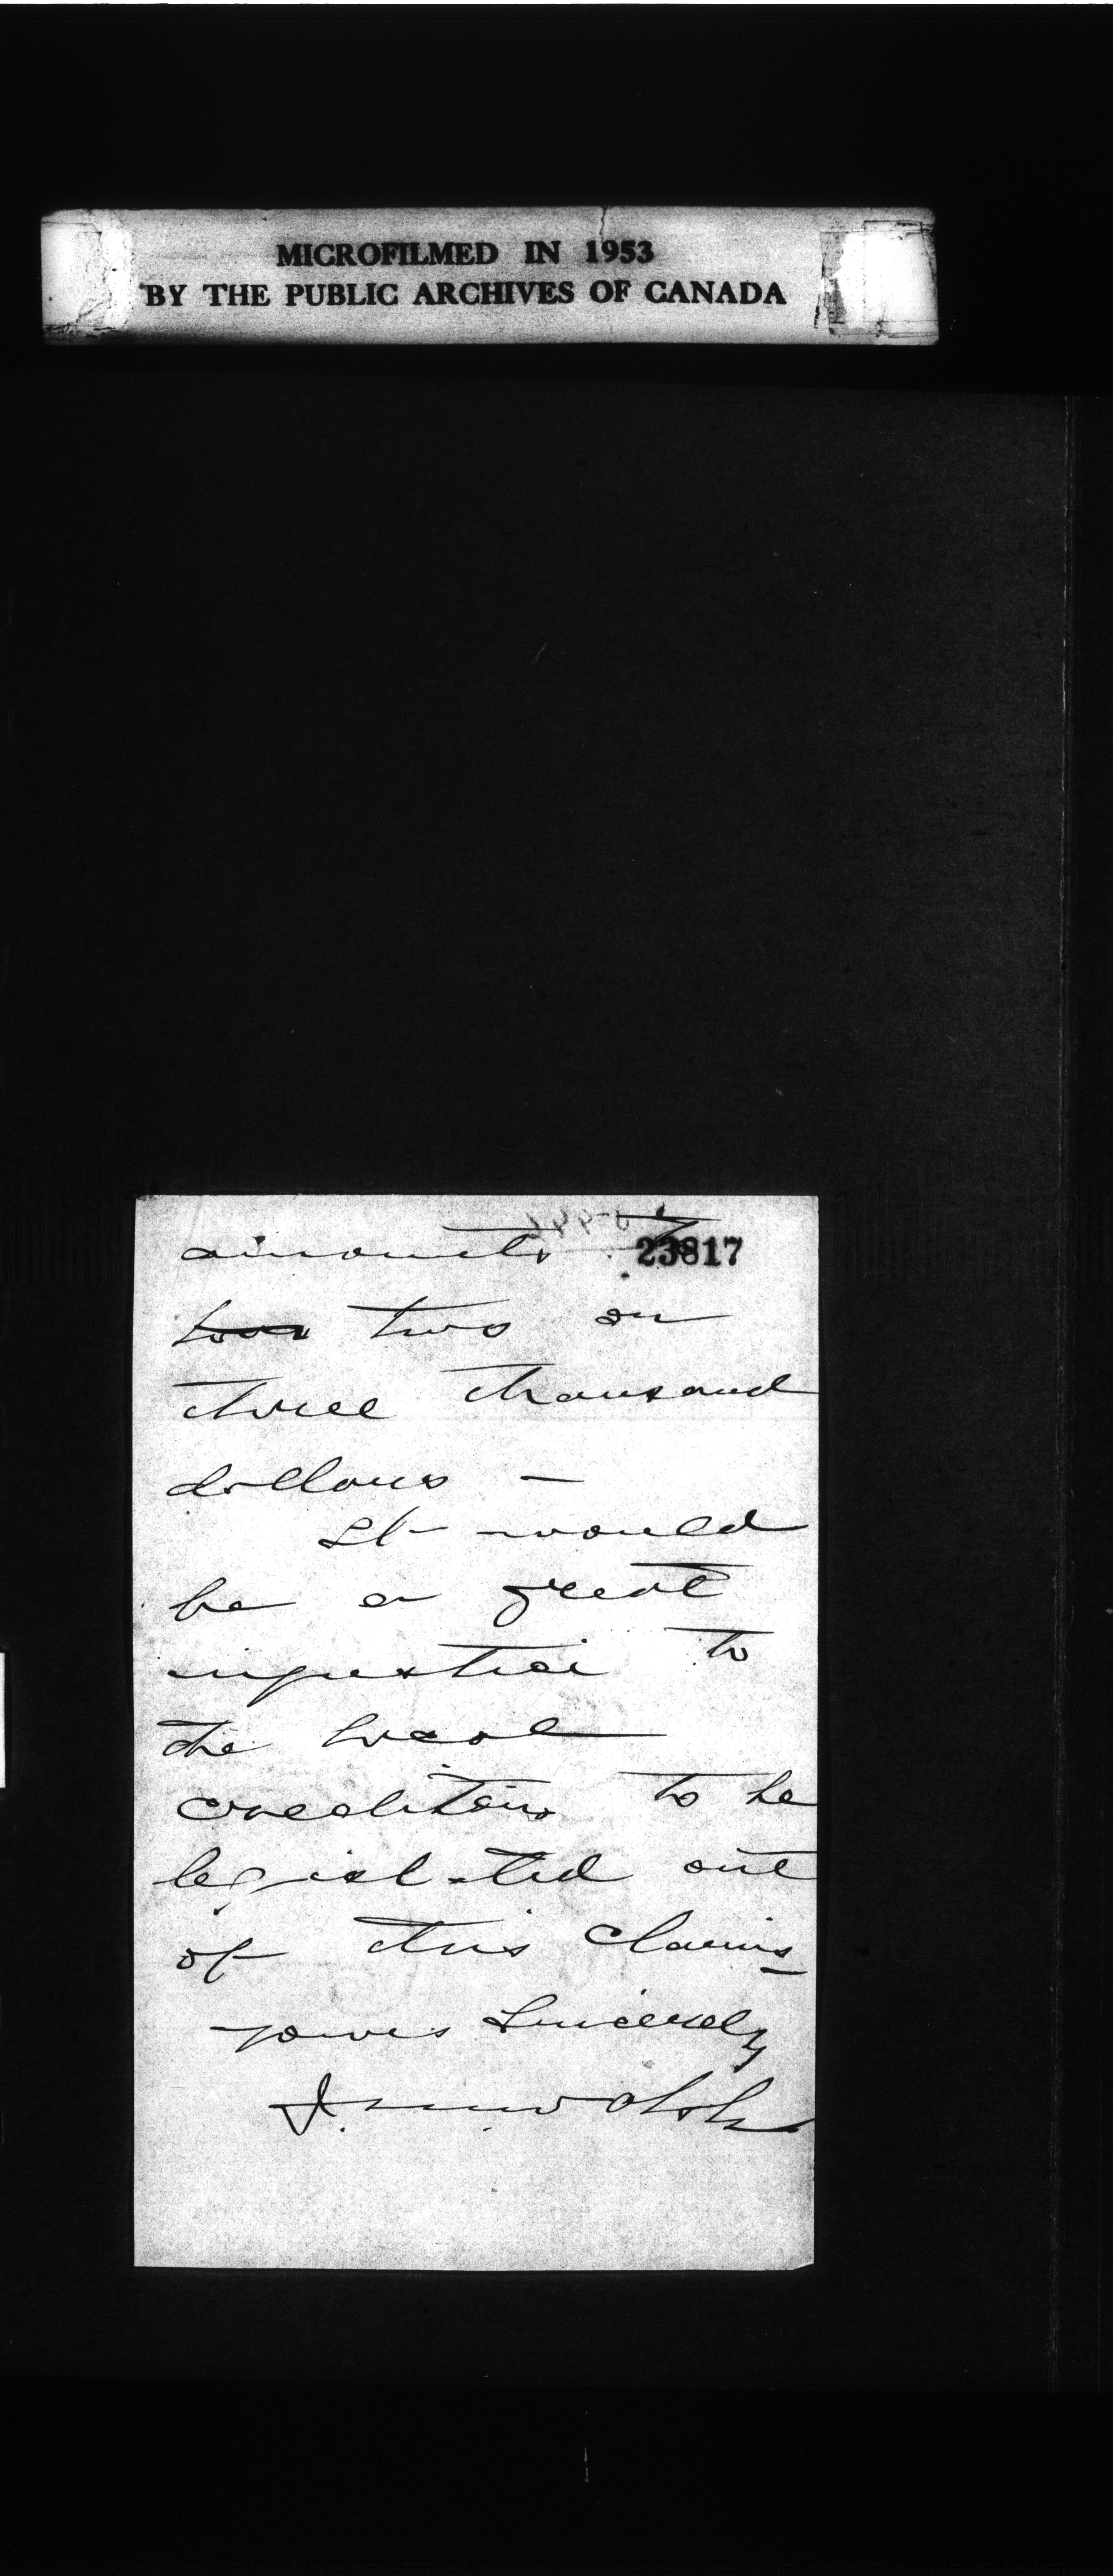 MICROFILMED IN 1953
BY THE PUBLIC ARCHIVES OF CANADA
amounts to
23817
two or
three thousand
dollars –
It would
be a great
injustice to
the local
creditors to be
legislated out
of this claims
yours sincerely
J. M. Walsh